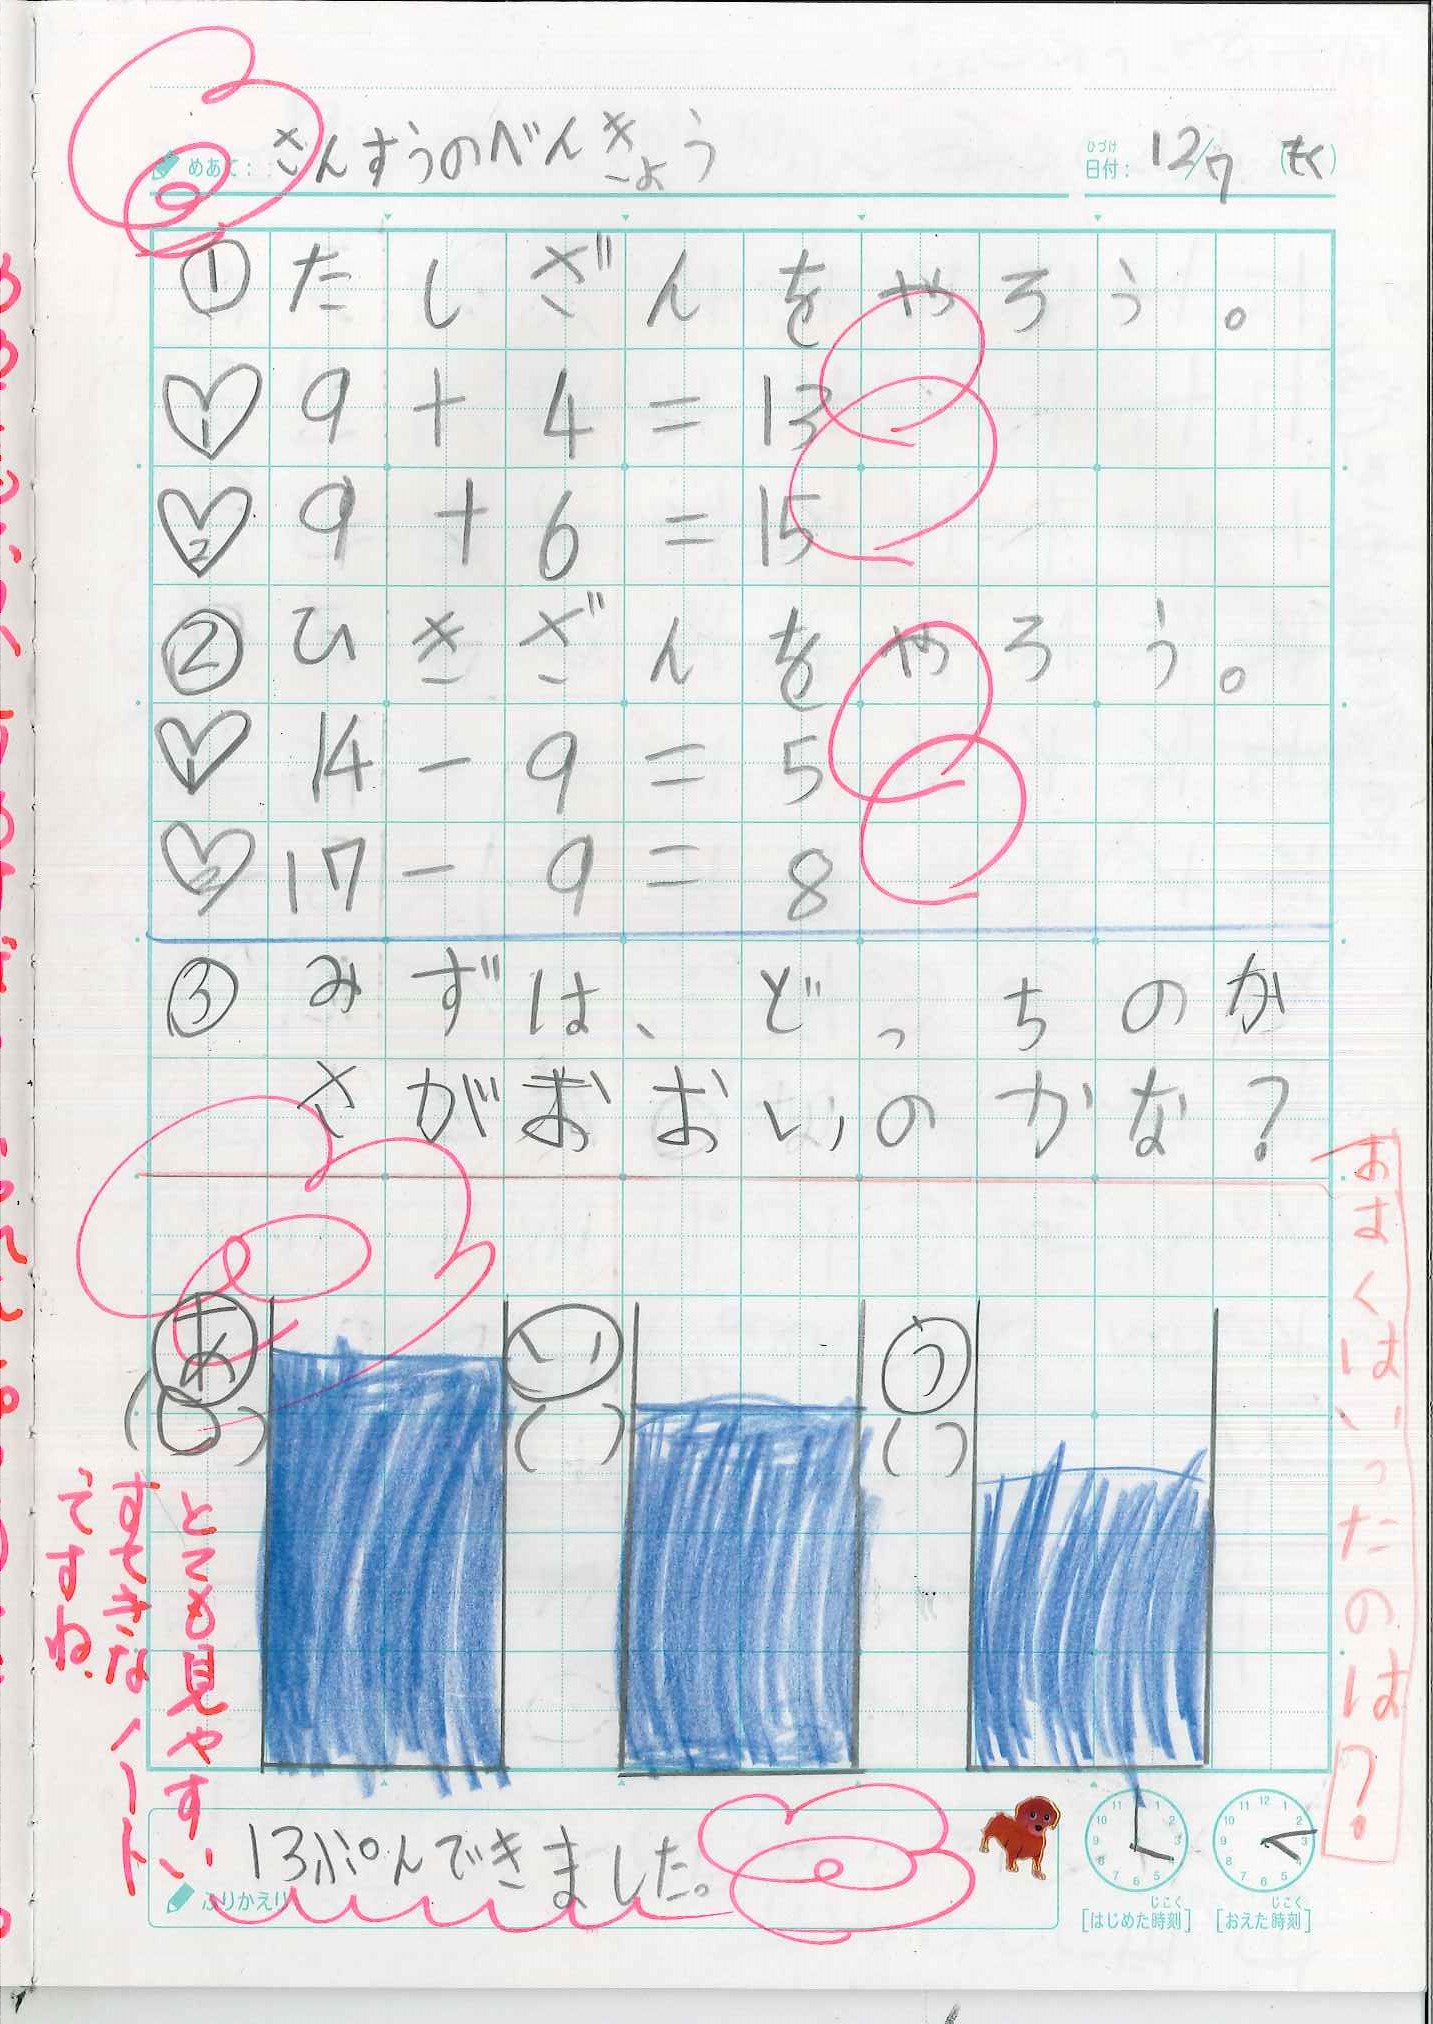 めあて：さんすうのべんきょう
日付：ひづけ 12/7 (もく)
①たしざんをやろう。
1 9+4=13
2 9+6=15
②ひきざんをやろう。
1 14-9=5
2 17-9=8
③みずは、どっちのか
さがおおいのかな？
あ い う
(○) ( ) ( )
おおくはいったのは？
とても見やすい
すてきなノート
ですね。
13ぷんできました。
ふりかえり
[はじめた時刻] じこく [おえた時刻] じこく